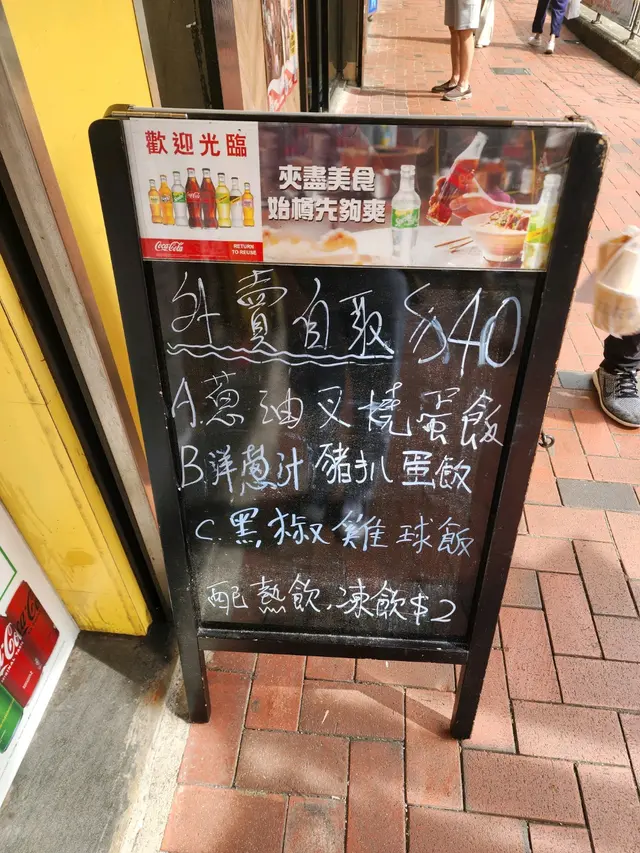 歡迎光臨
Coca-Cola
RETURN
TO REUSE
夾盡美食
始樽先夠爽
外賣自取 $40
A.蔥油叉燒蛋飯
B洋蔥汁豬扒蛋飯
C.黑椒雞球飯
配熱飲.凍飲$2
Coca-Cola